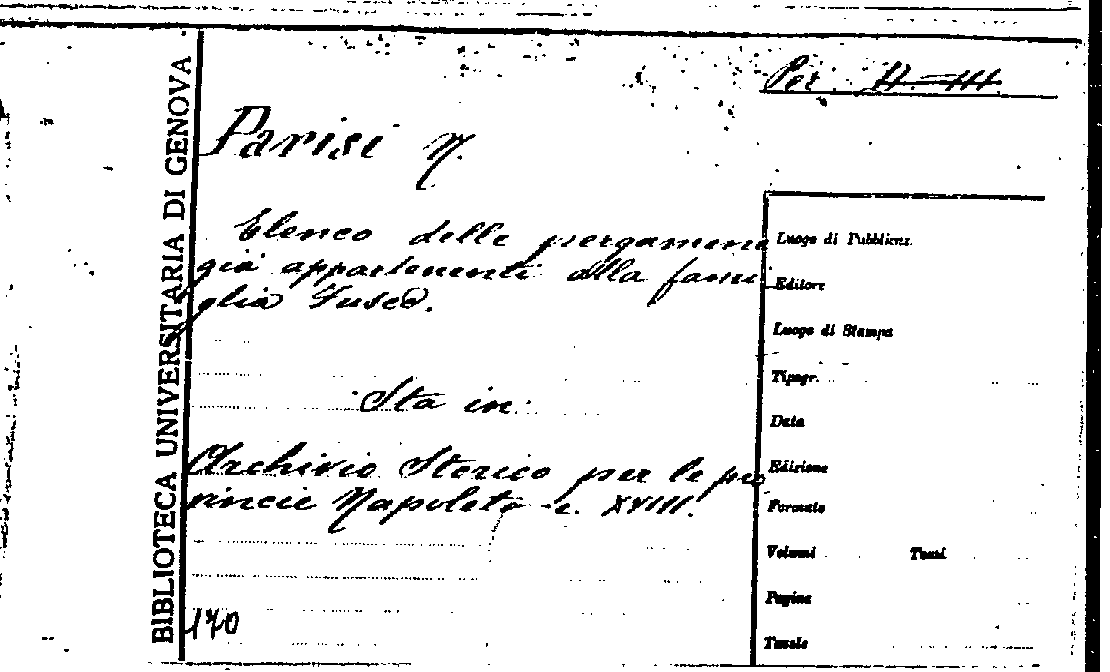 BIBLIOTECA UNIVERSITARIA DI GENOVA
Per. A. III.
Parisi N.
Elenco delle pergamene
già appartenenti alla fami
glia Fusco.
Sta in:
Archivio Storico per le pro
vincie Napolet. XVIII.
170
Luogo di Pubblicaz.
Editore
Luogo di Stampa
Tipogr.
Data
Edizione
Formato
Volumi Tomi
Pagine
Tavole